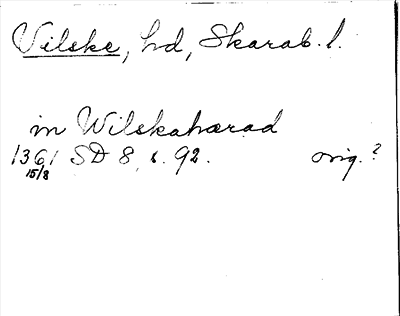 Vilske, hd, Skarab. l.
in Wilskahærad
1361 SD 8 s. 92. orig.?
15/8